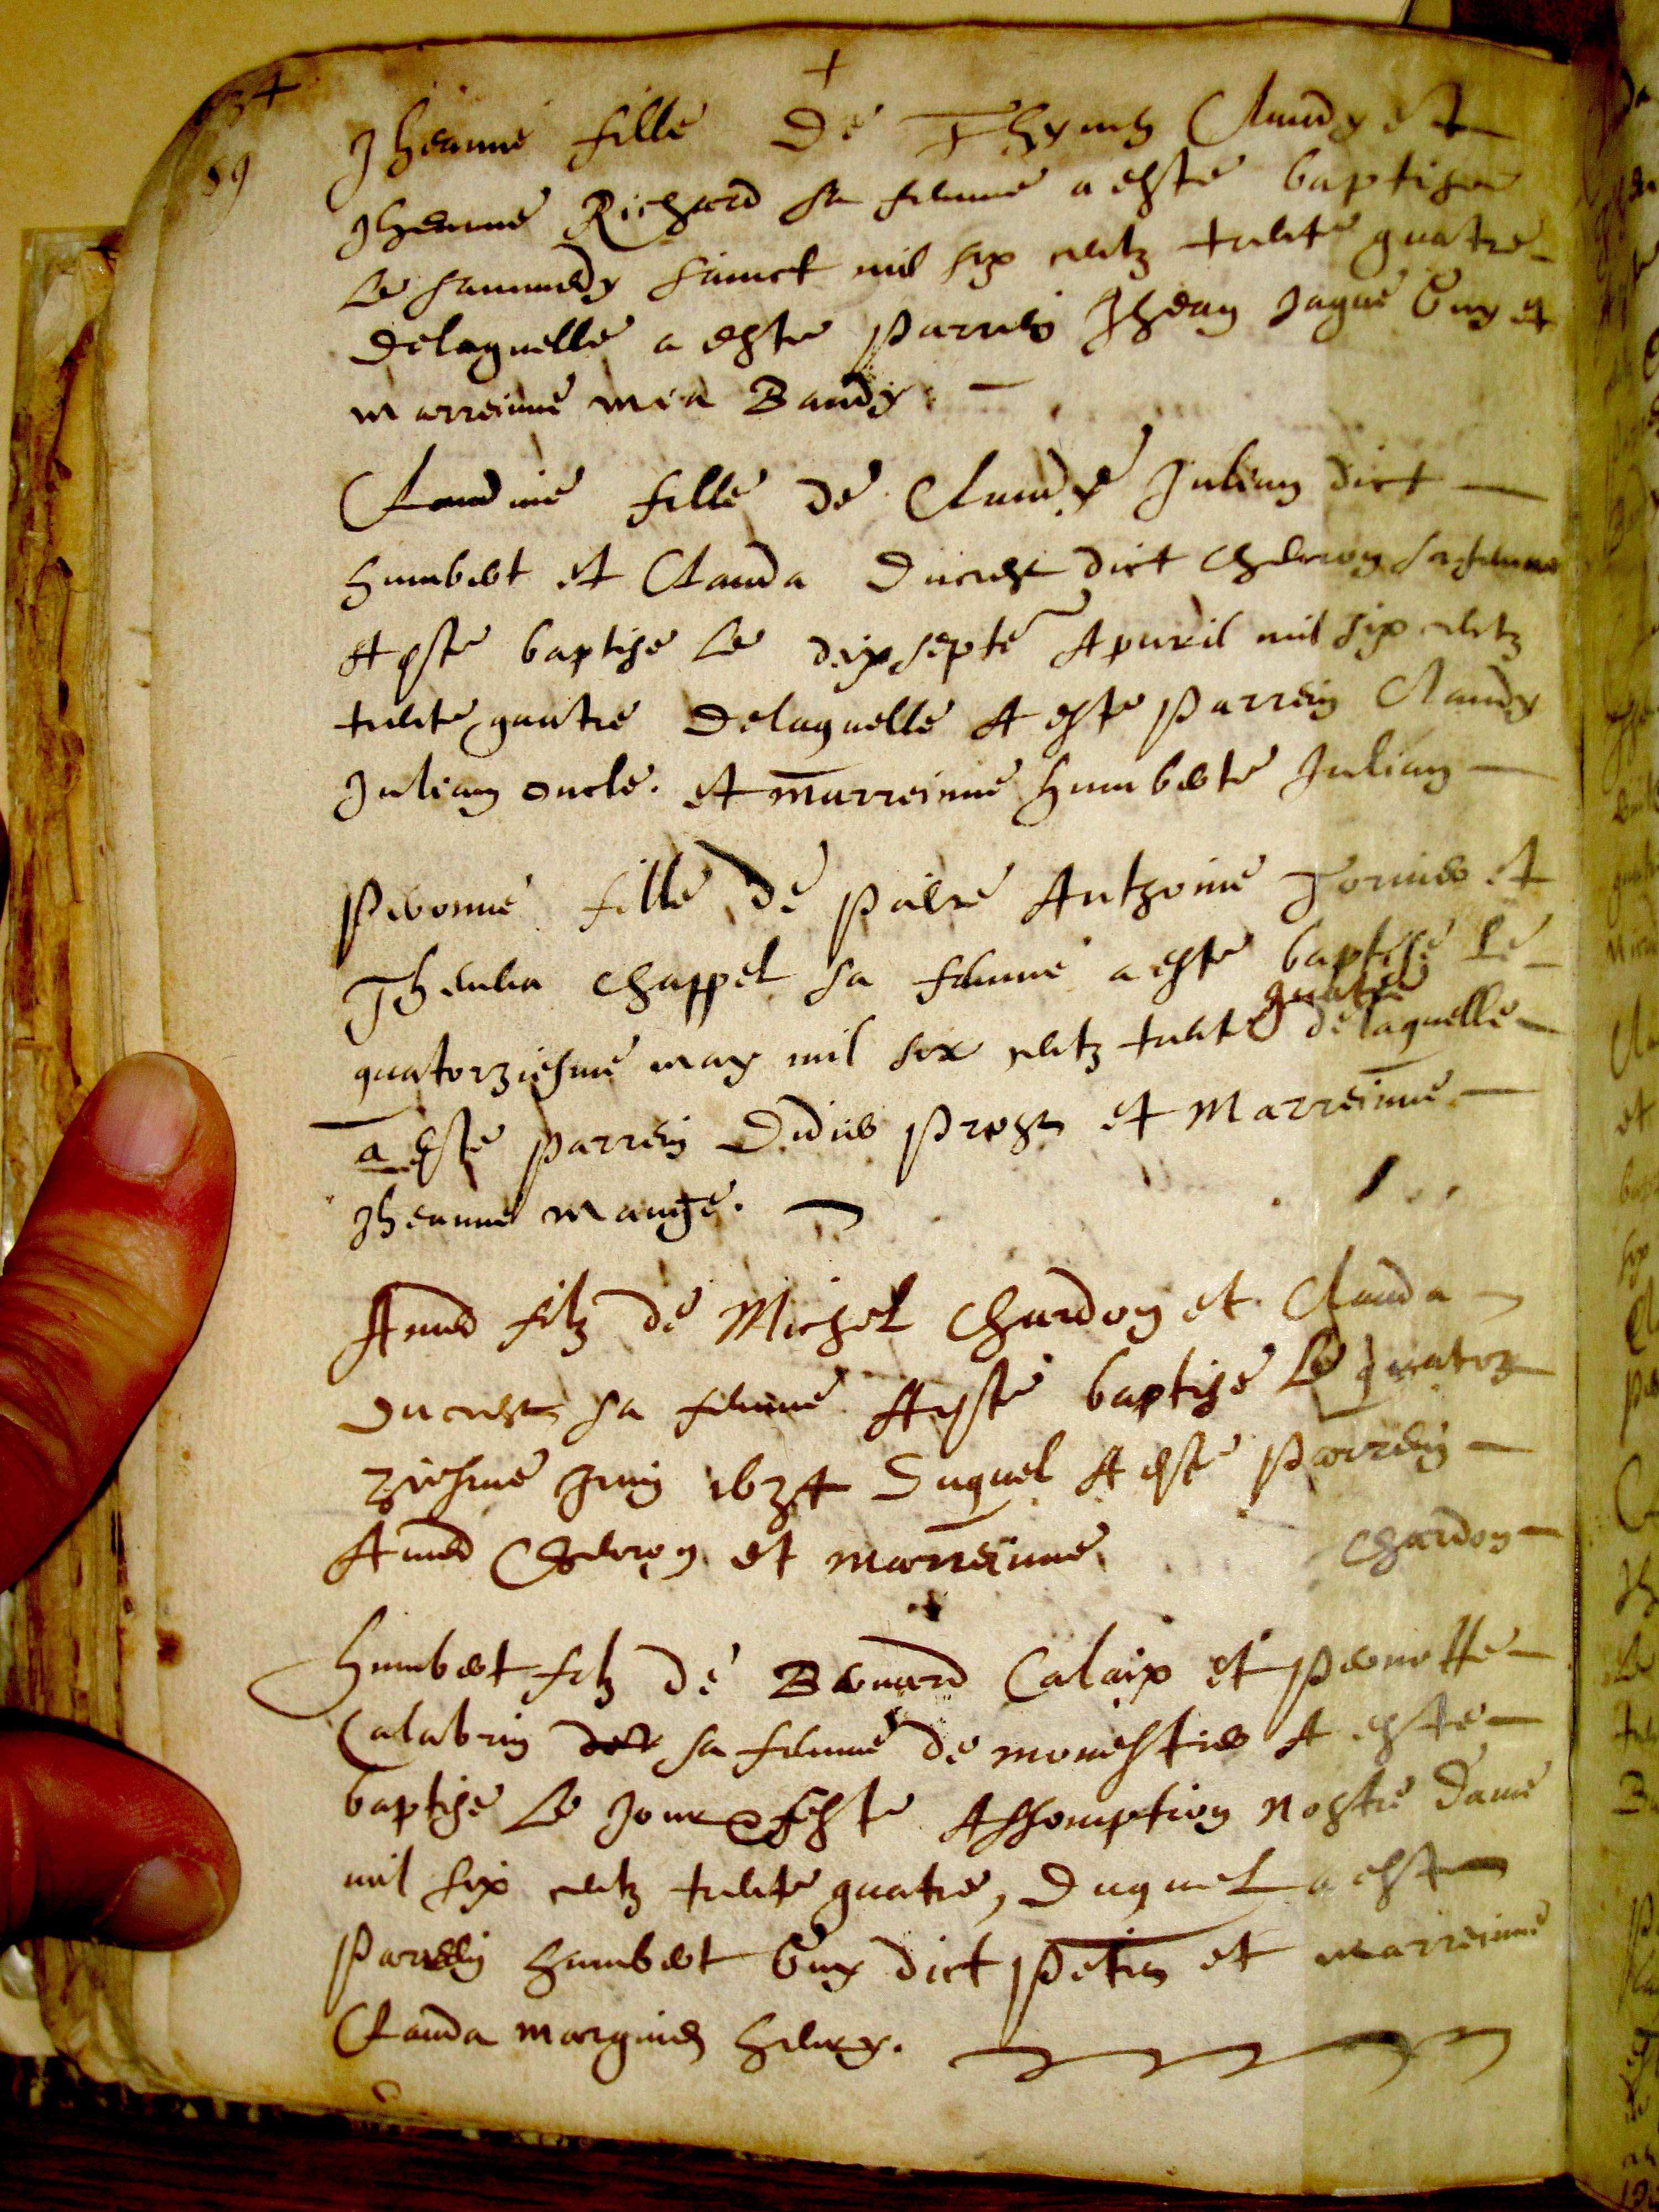 +
34
59
Jheanne fille De Thyven Claudy et
Jheanne Richard sa femme a este baptise
Le sammedy sainct mil six centz trente quatre
Delaquelle a este parrein Jhean Jaque Guy et
marreinne mya Baudy.
Claudine fille de Claude Julian dict
humbert et Clauda Ducrest dict Chevron sa femme
A este baptise Le dixsepte Apvril mil six centz
trente quatre Delaquelle A este parrein Claudy
Julian oncle. et marreinne humberte Julian
Pernonne fille de Paivre Anthoine Tornier et
Thevena Chappel sa femme a este baptise Le
quatre
quatorziesme may mil six centz trente delaquelle
a este parrein Didier et Marreinne
Jheanne Mange.
Amed filz de Michel Chardon et Clauda
Ducrest sa femme A este baptise Le quator
ziesme Juin 1634 Duquel A este parrein
Amed Chevron et marreinne Chardon
humbert filz de Bernard Calaix et pernette
Calabrin sa femme de monestier A este
baptise Le Jour & feste Assomption nostre Dame
mil six centz trente quatre, Duquel a este
Parrein humbert Guy dict petin et marreinne
Clauda henry.